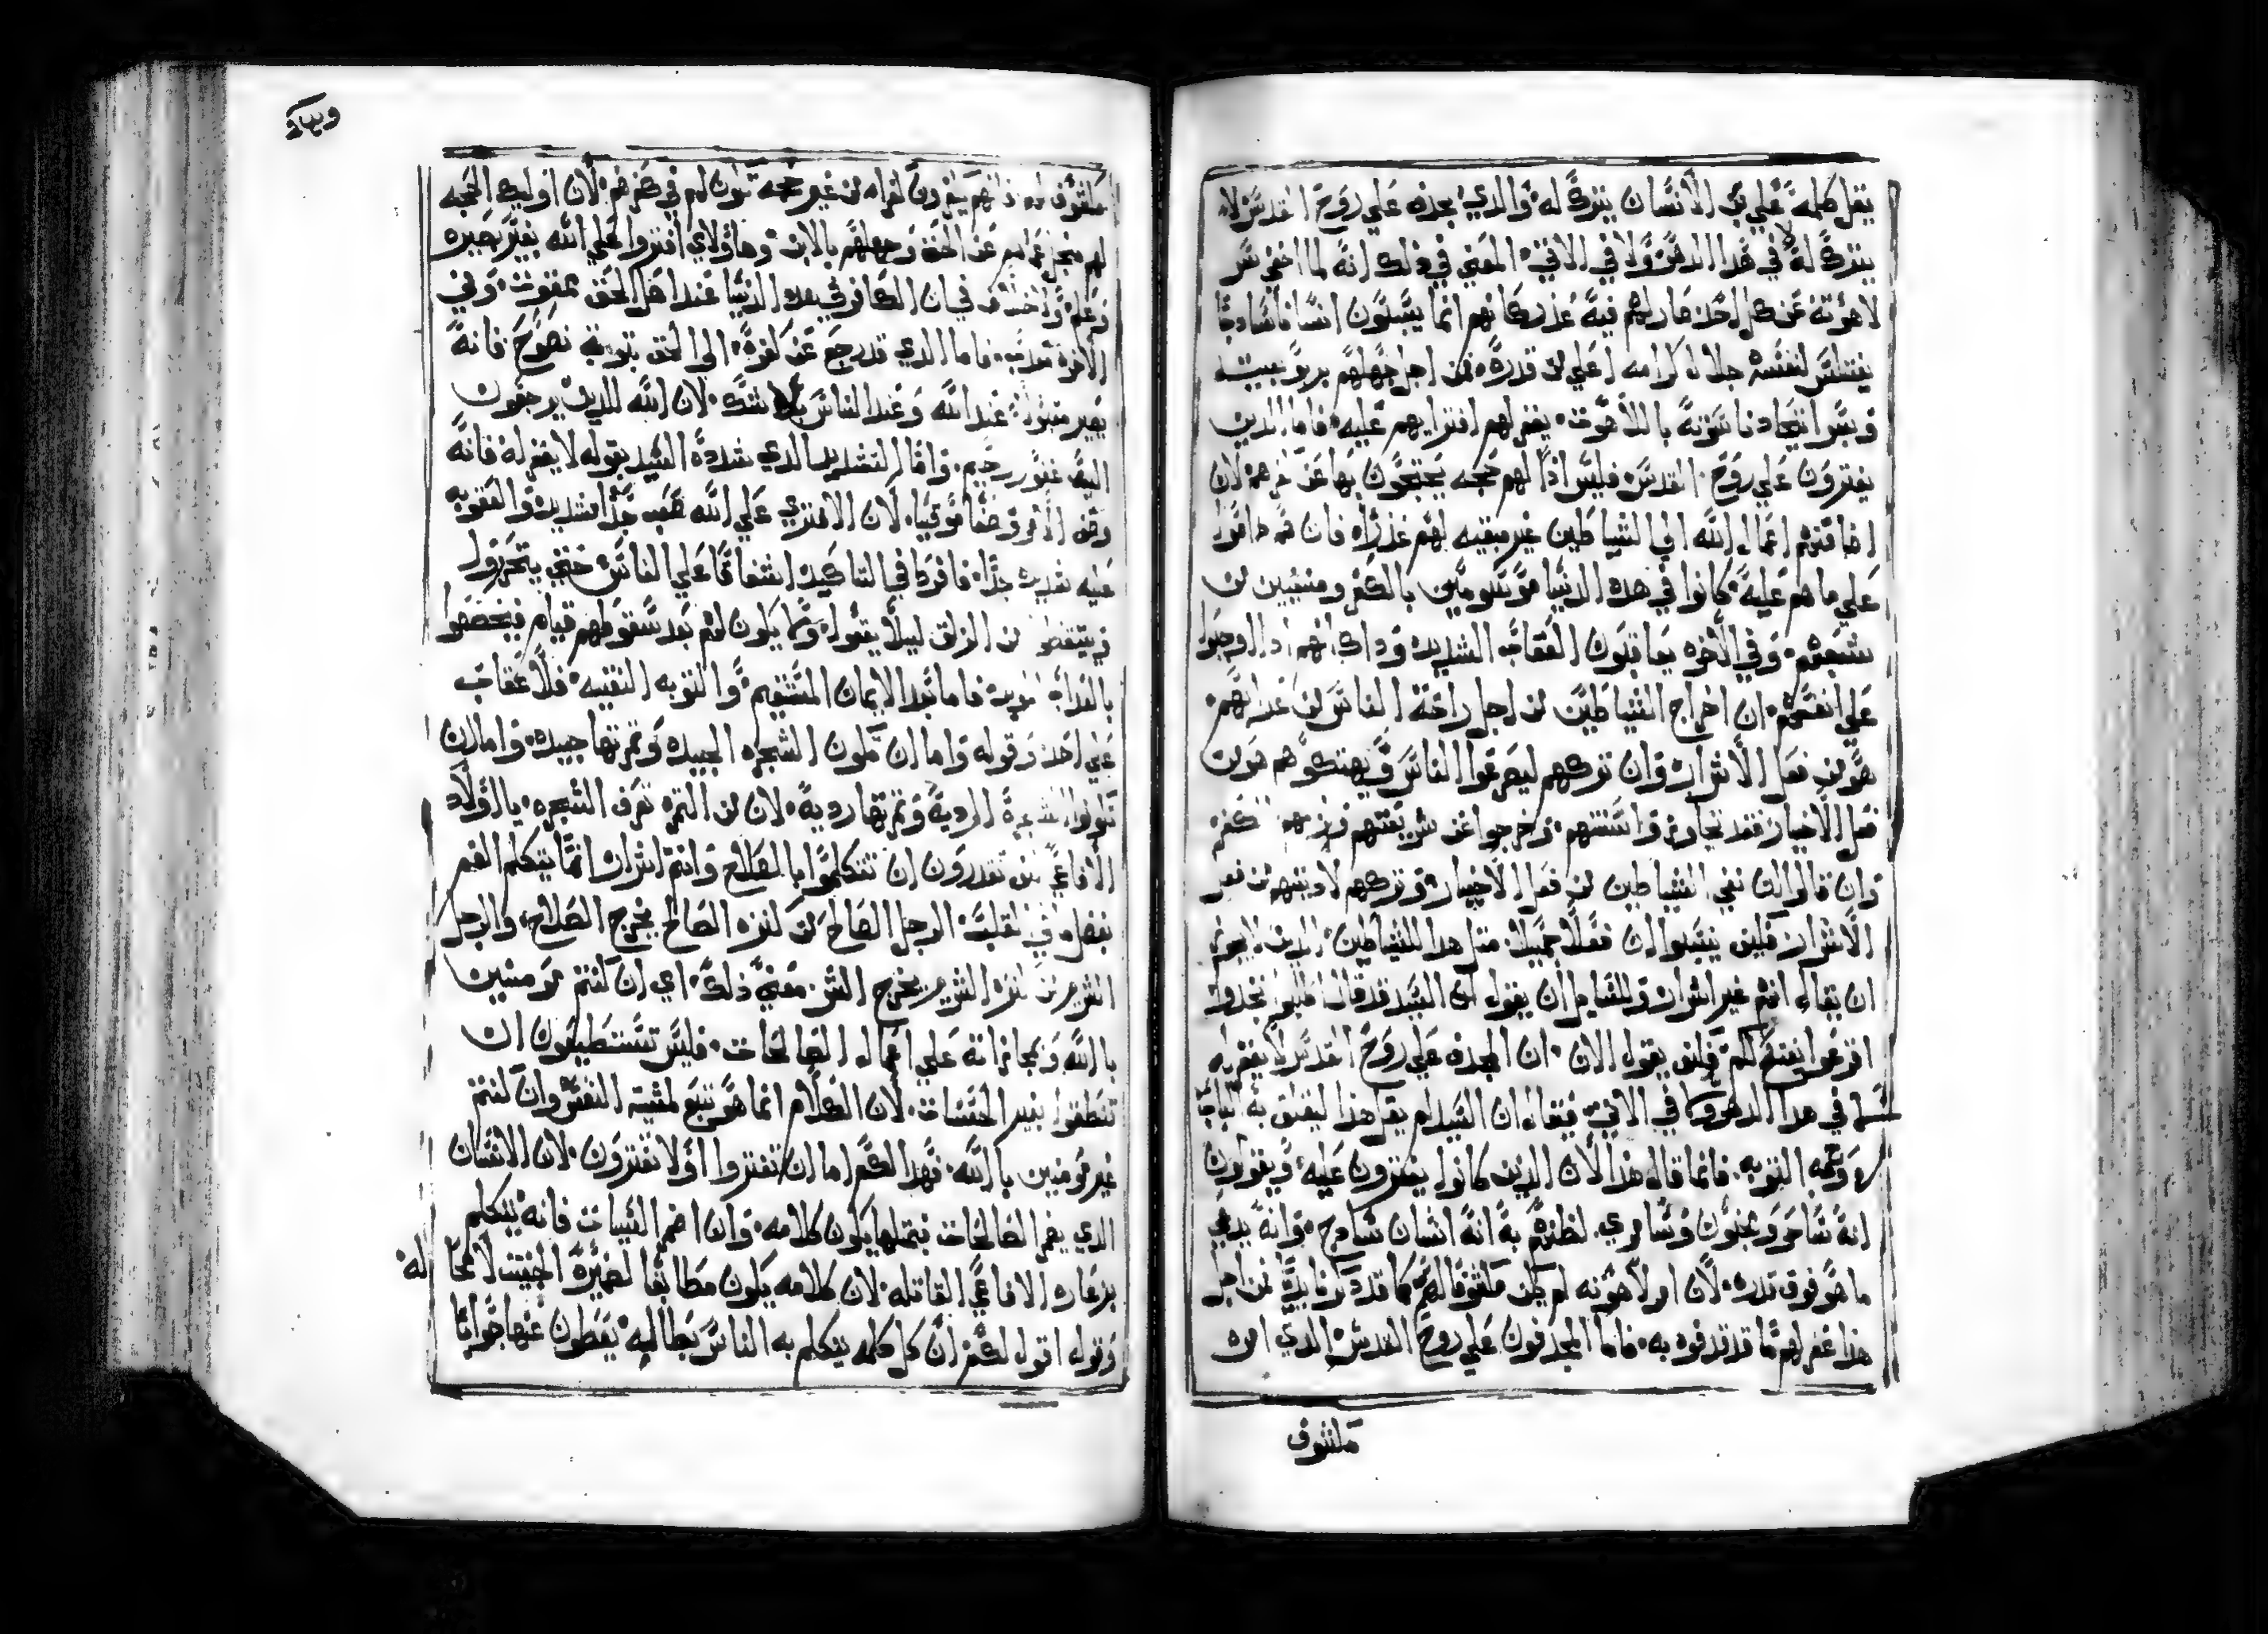 يقل كلمة علي بن الانسان يترك له والدي يجدف علي روح القدس لا
يترك له في هذا الدهر ولا في الاتي المعني في ذلك انه لما اخفي سر
لاهوته عن كل احد صار لهم فيه عذر كانهم انما يسبون انسانا سادجا
يختلس لنفسه جلالا وكرامه اعلي من قدره فمن اجل جهلهم بربوبيته
وبسر اتحاد ناسوته باللاهوت يغفر لهم افترايهم عليه فاما الدين
يفترون علي روح القدس فليس ادا لهم حجه يحتجون بها عن لان
اضافتهم اعمال الله الي الشياطين غير مبقيه لهم عذرا فان هم داموا
علي ما هم عليه كانوا في هذه الدنيا موسومين بالكفر ومنسبين من
شيعتهم وفي الاخره يعاقبون العقاب الشديد وداك انهم ادا اوجبوا
علي انفسهم ان اخراج الشياطين من اجل راحة الناس من عدابهم
هو من فعل الاشرار وان تركهم ليصرعوا الناس ويهتكوهم هو من
فعل الاخيار فقد تجاوزوا سنتهم وخرجوا عن شريعتهم ولزمهم الكفر
وان قالوا ان نفي الشياطين من فعل الاخيار وتركهم لاديتهم من فعل
الاشرار فكيف ينسبوا ان فعلا جميلا مثل هذا للشياطين الدين لا يجوز
ان يقال انهم غير اشرار وللقايل ان يقول ان السيد قد قال اطلبوا تجدوا
اقرعوا يفتح لكم وكيف يقول الان ان المجدف علي روح القدس لا يغفر له
في هذا الدهر ولا في الاتي فيقال ان السيد لم يقل هذا ليغلق به الباب
في وجه التوبه فانما قال هذا لان الدين كانوا يفترون عليه ويقولون
انه ساحر ومجنون وسامري لظنهم به انه انسان سادج وانه يدعي
ما هو فوق قدره لان امر لاهوته لم يكن مكشوفا لهم كما قد دكرنا بديا من اجل
هذا غفر لهم ما قد قدفوه به فاما المجدفون علي روح القدس الدي امره
مكشوف
ويباد
مكشوف لهم فانهم يفترون افتراه من غير حجه تكون لهم في كفرهم لان اوليك الحجه
لهم من اجل غباهم عن الحق وجهلهم بالابن وهاولاي افتروا علي الله بغير بصيره
وعلم ولا خلاف في ان الكافر في هذه الدنيا عند اهل الحق ممقوت وفي
الاخره معدب فاما الدي قد رجع عن كفره الي الحق بتوبة نصوح فانه
يصير مقبولا عند الله وعند الناس بلا شك لان الله للدين يرجعون
اليه غفور رحيم واما التشديد الدي شدده السيد بقوله لا يغفر له فانه
وضع الامر وضعا قويا لان الافتري علي الله صعب جدا شديد والعقوبه
عليه شديده جدا فافرد في التاكيد اشفاقا علي الناس حتي يتحرزوا
ويتيقظوا من الزلق ليلا يقعوا وما يكون لهم بعد سقوطهم قيام فيخضعوا
بالعداب المويد فاما بعد الايمان المستقيم والتوبه النقيه فلا عقاب
علي احد وقوله واما ان تكون الشجره الجيده وثمرتها جيده واما ان
تكون الشجرة الردية وثمرتها ردية لان من الثمر تعرف الشجره يا اولاد
الافاعي كيف تقدرون ان تتكلموا بالصلاح وانتم اشرار انما يتكلم الفم
بفضل ما في القلب الرجل الصالح من كنزه الصالح يخرج الصلاح والرجل
الشرير من كنزه الشرير يخرج الشر معني ذلك اي ان كنتم مومنين
بالله ومجازاته علي اعمال الصالحات فليس تستطيعون ان
تنطقوا بغير الحسنات لان الكلام انما هو تبع لمشية النفس وان كنتم
غير مومنين بالله فهذا لكم اما ان تفتروا او لا تفترون لان الانسان
الدي يضمر الصالحات فبمثلها يكون كلامه وان اضمر السيات فانه يتكلم
بزعاره الافاعي القاتله لان كلامه يكون مطابقا لضميره الخبيث لا محاله
وقوله اقول لكم ان كل كلمه يتكلم به الناس بطاليه يعطون عنها جوابا